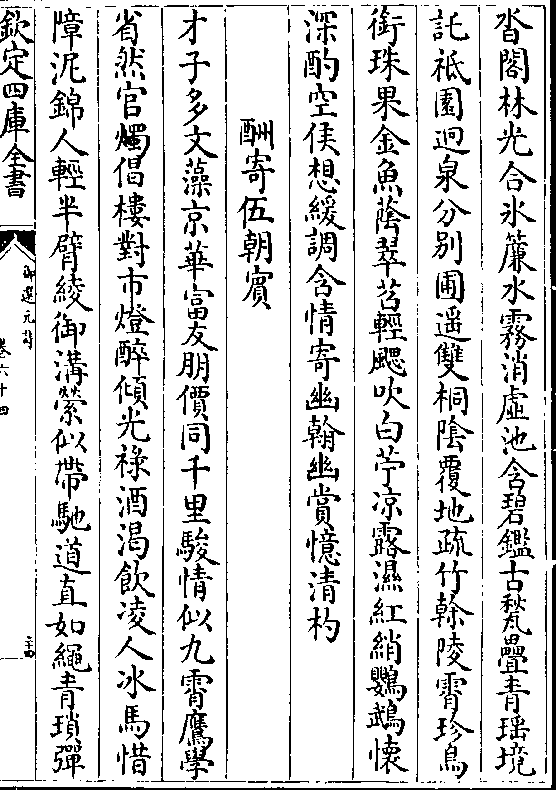 沓閣林光合氷簾水霧消虛池含碧鑑古甃疊青瑶境
託祗園迥泉分别圃遥雙桐陰覆地疏竹榦陵霄珍鳥
銜珠果金魚蔭翠苕輕颸吹白苧凉露濕紅綃鸚鵡懐
深酌空侯想緩調含情寄幽翰幽賞憶清杓
酬寄伍朝賓
才子多文藻京華富友朋價同千里駿情似九霄鷹學
省然官燭倡樓對市燈醉傾光祿酒渴飲凌人冰馬惜
障泥錦人輕半臂綾御溝縈似帶馳道直如繩青瑣彈
欽定四庫全書
御選元詩
卷六十四